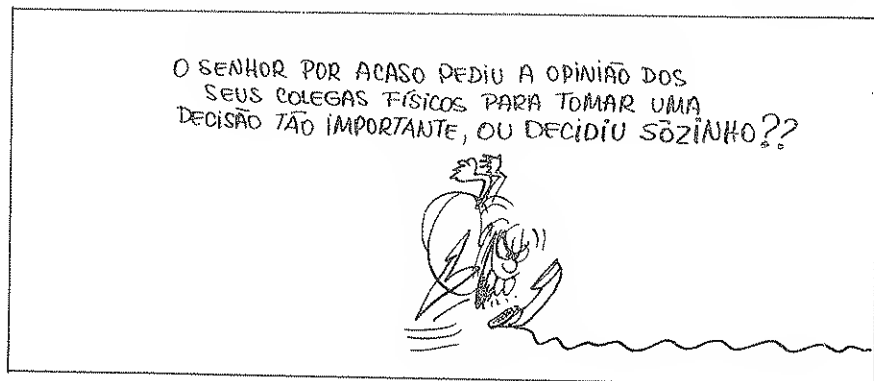 O SENHOR POR ACASO PEDIU A OPINIÃO DOS
SEUS COLEGAS FÍSICOS PARA TOMAR UMA
DECISÃO TÃO IMPORTANTE, OU DECIDIU SÒZINHO??